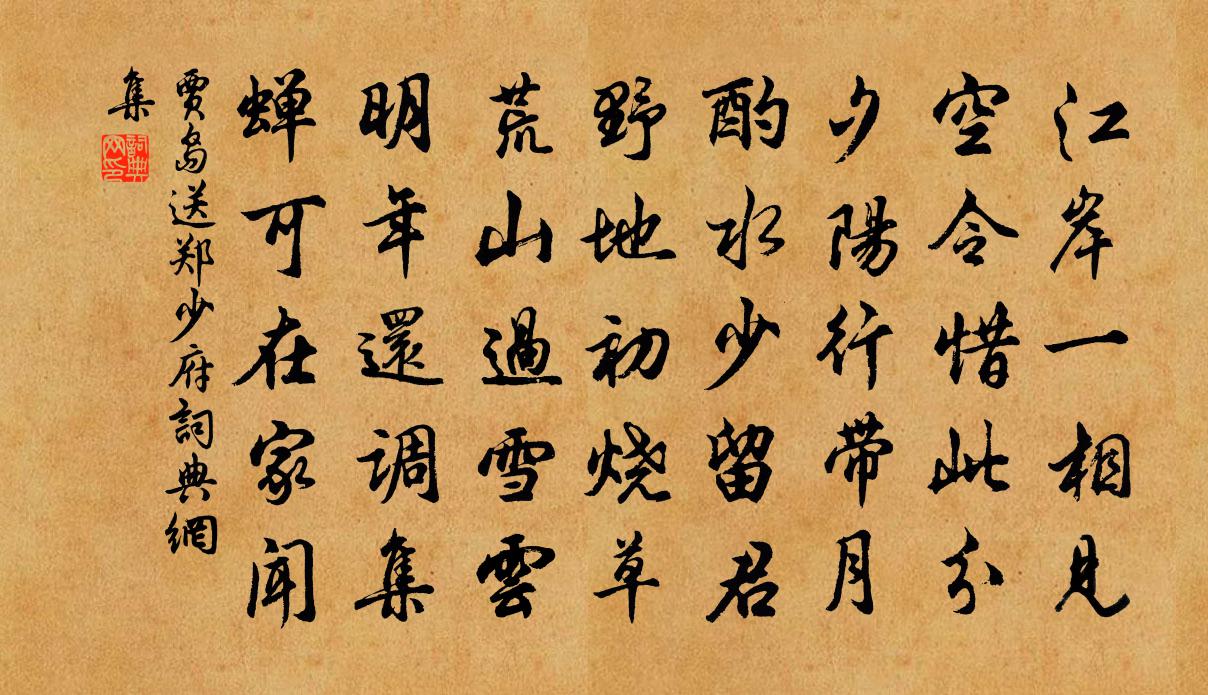 江岸一相見
空令惜此分
夕陽行带月
酌水少留君
野地初烧草
荒山過雪雲
明年還调集
蝉可在家闻
賈島送郑少府詞典網
集
詞典
网印